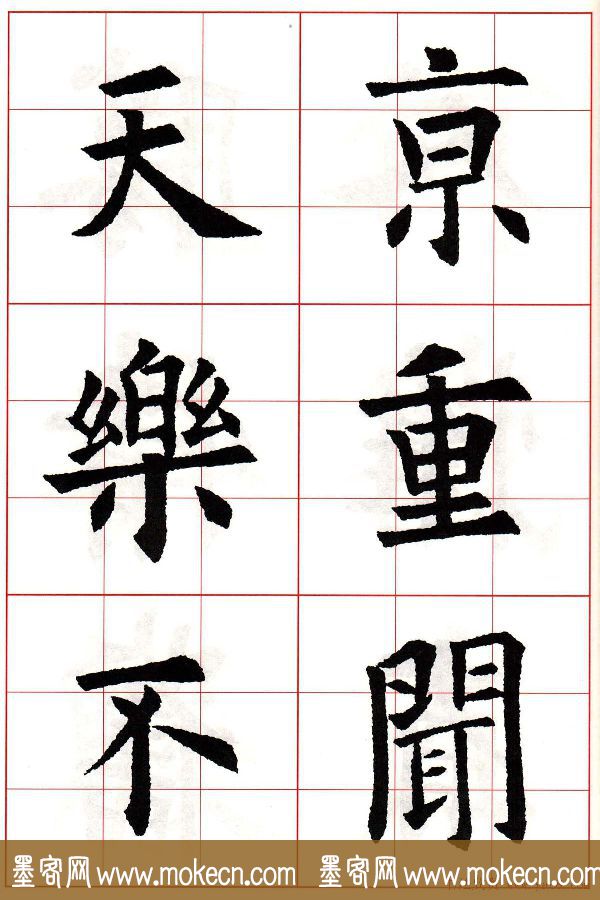 亰重聞
天樂不
墨客网 www.mokecn.com 墨客网 www.mokecn.com